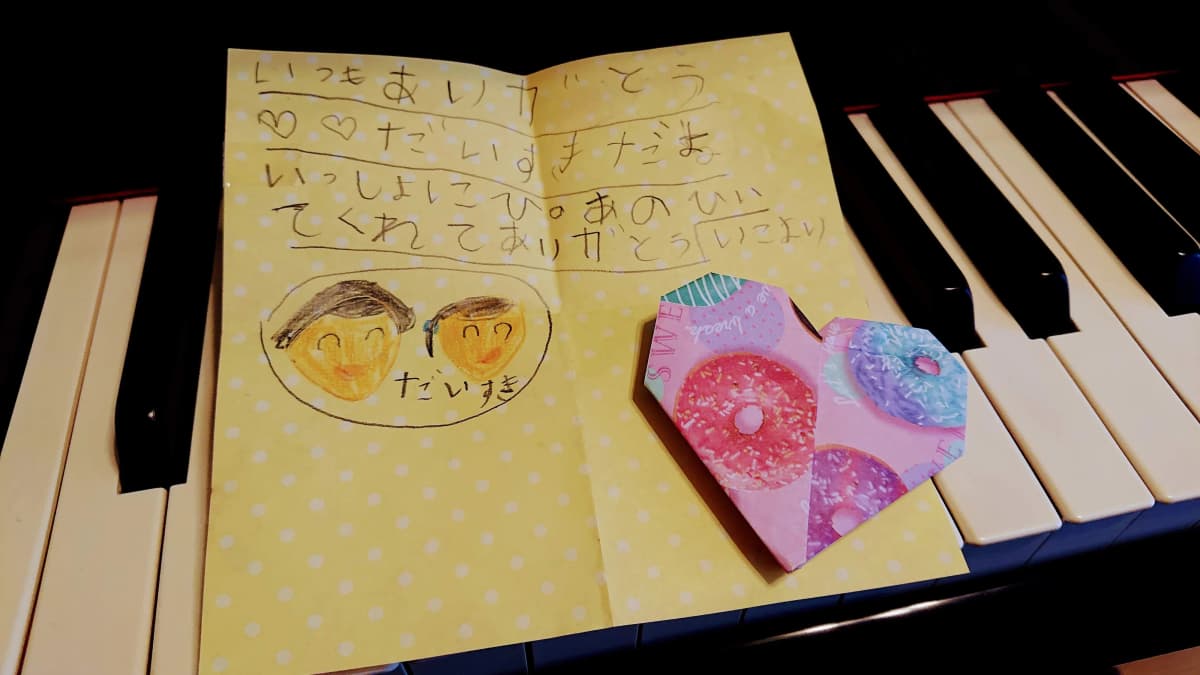 いつもありがとう
♡ ♡ だいすきだよ
いっしょにぴあのひい
てくれてありがとう いこより
だいすき
SWE
a break